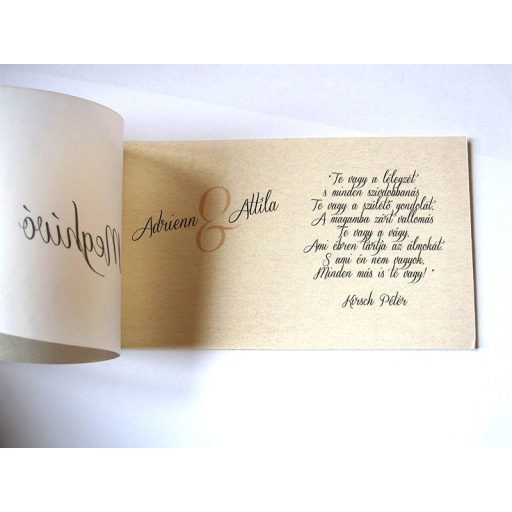 Meghívó
Adrienn & Attila
"Te vagy a lélegzet
s minden szívdobbanás
Te vagy a születő gondolat,
A magamba zárt vallomás
Te vagy a vágy,
Ami ébren tartja az álmokat.
S ami én nem vagyok,
Minden más is te vagy! "
Kirsch Péter